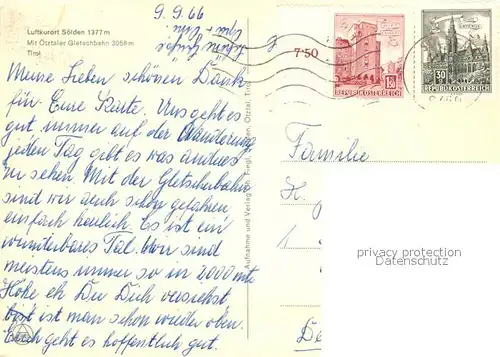 Luftkurort Sölden 1377 m
Mit Ötztaler Gletschbahn 3058 m
Tirol
9.9.66
Meine Lieben schönen Dank
für Eure Karte. Uns geht es
gut immer auf der Wanderung
jeden Tag gibt es was anderes
zu sehen. Mit der Gletscherbahn
sind wir auch schon gefahren
einfach herrlich. Es ist ein
wunderbares Tal. Wir sind
meistens immer so in 2000 mtr
Höhe eh Du Dich versiehst
bist ist man schon wieder oben.
Euch geht es hoffentlich gut.
Aufnahme und Verlag Ötztal, Tirol
7·50
1.80
REPUBLIK ÖSTERREICH
30
REPUBLIK ÖSTERREICH
Familie
H.
1
privacy protection
Datenschutz